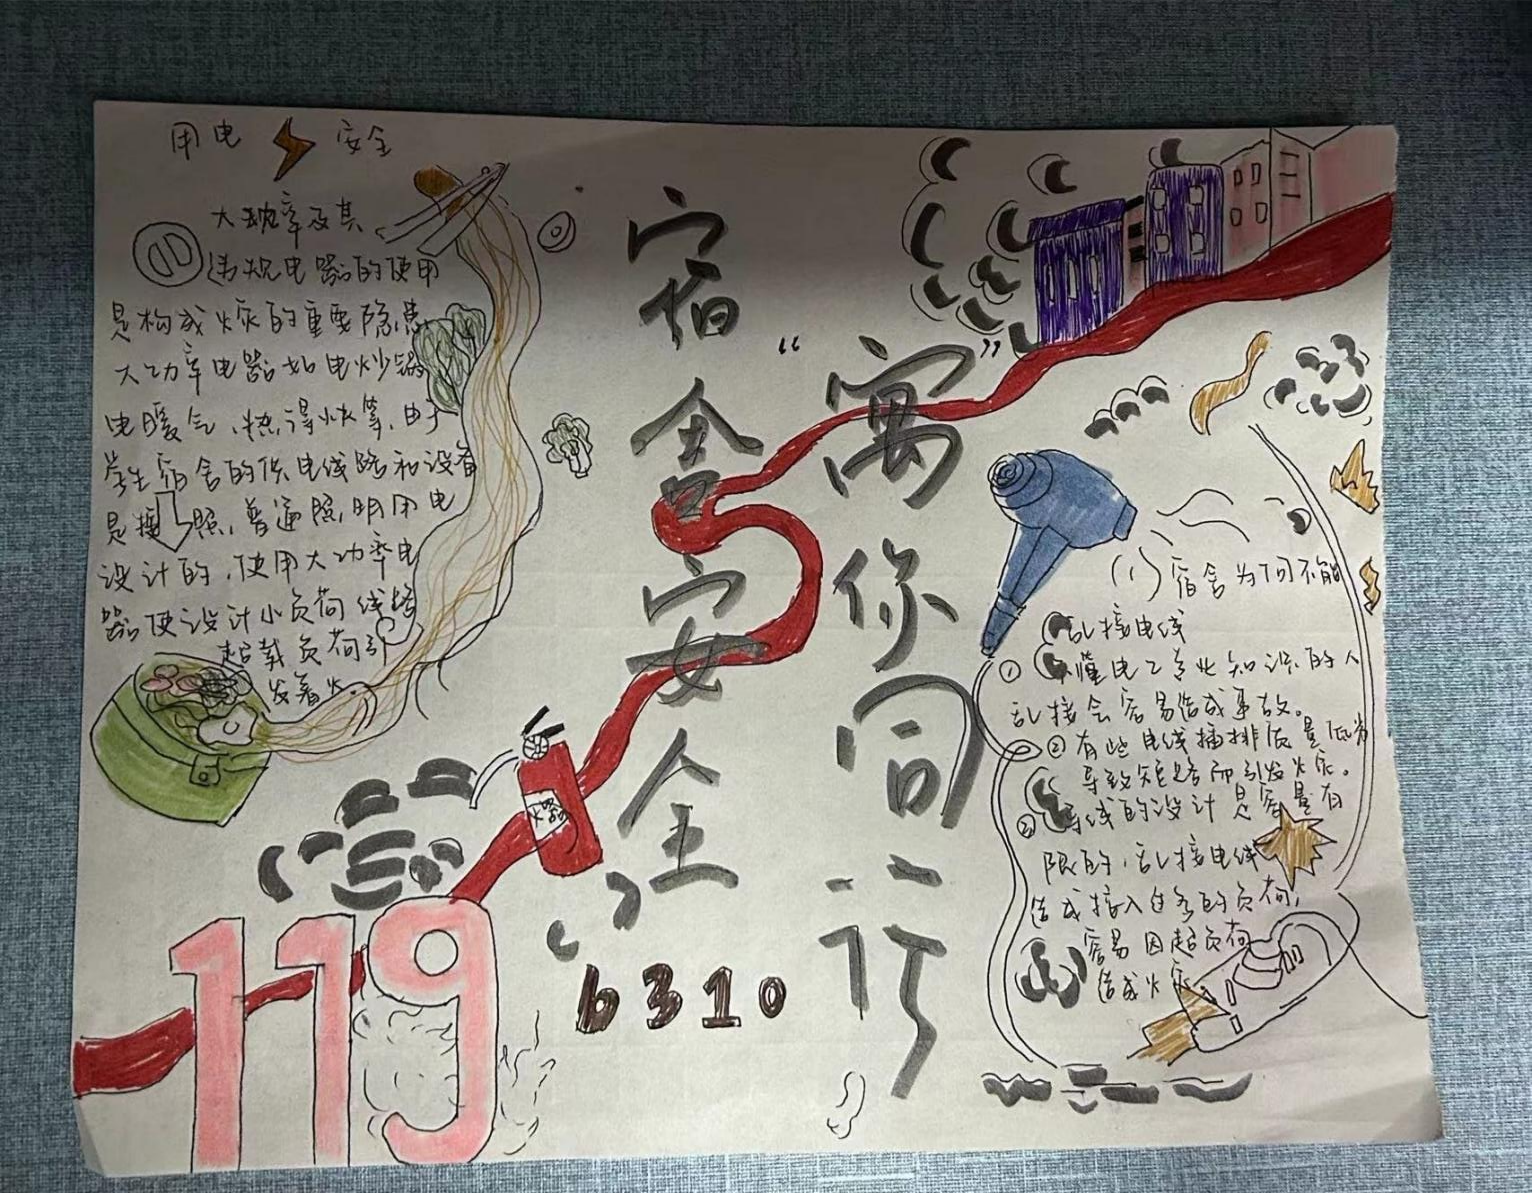 用电 安全
大功率及其
违规电器的使用
是构成火灾的重要隐患
大功率电器如电炒锅
电暖气、热得快等,由于
学生宿舍的供电线路和设备
是按照,普通照明用电
设计的,使用大功率电
器使设计小负荷线路
超载负荷引
发着火。
宿舍安全
“寓”你同行
火器
119
6310
(1)宿舍为何不能
乱接电线
① 懂电工专业知识的人
乱接会容易造成事故。
②有些电线插排质量低劣
导致短路而引发火灾。
导线的设计是容量有
限的,乱接电线
造成接入过多的负荷,
容易因超负荷
造成火灾